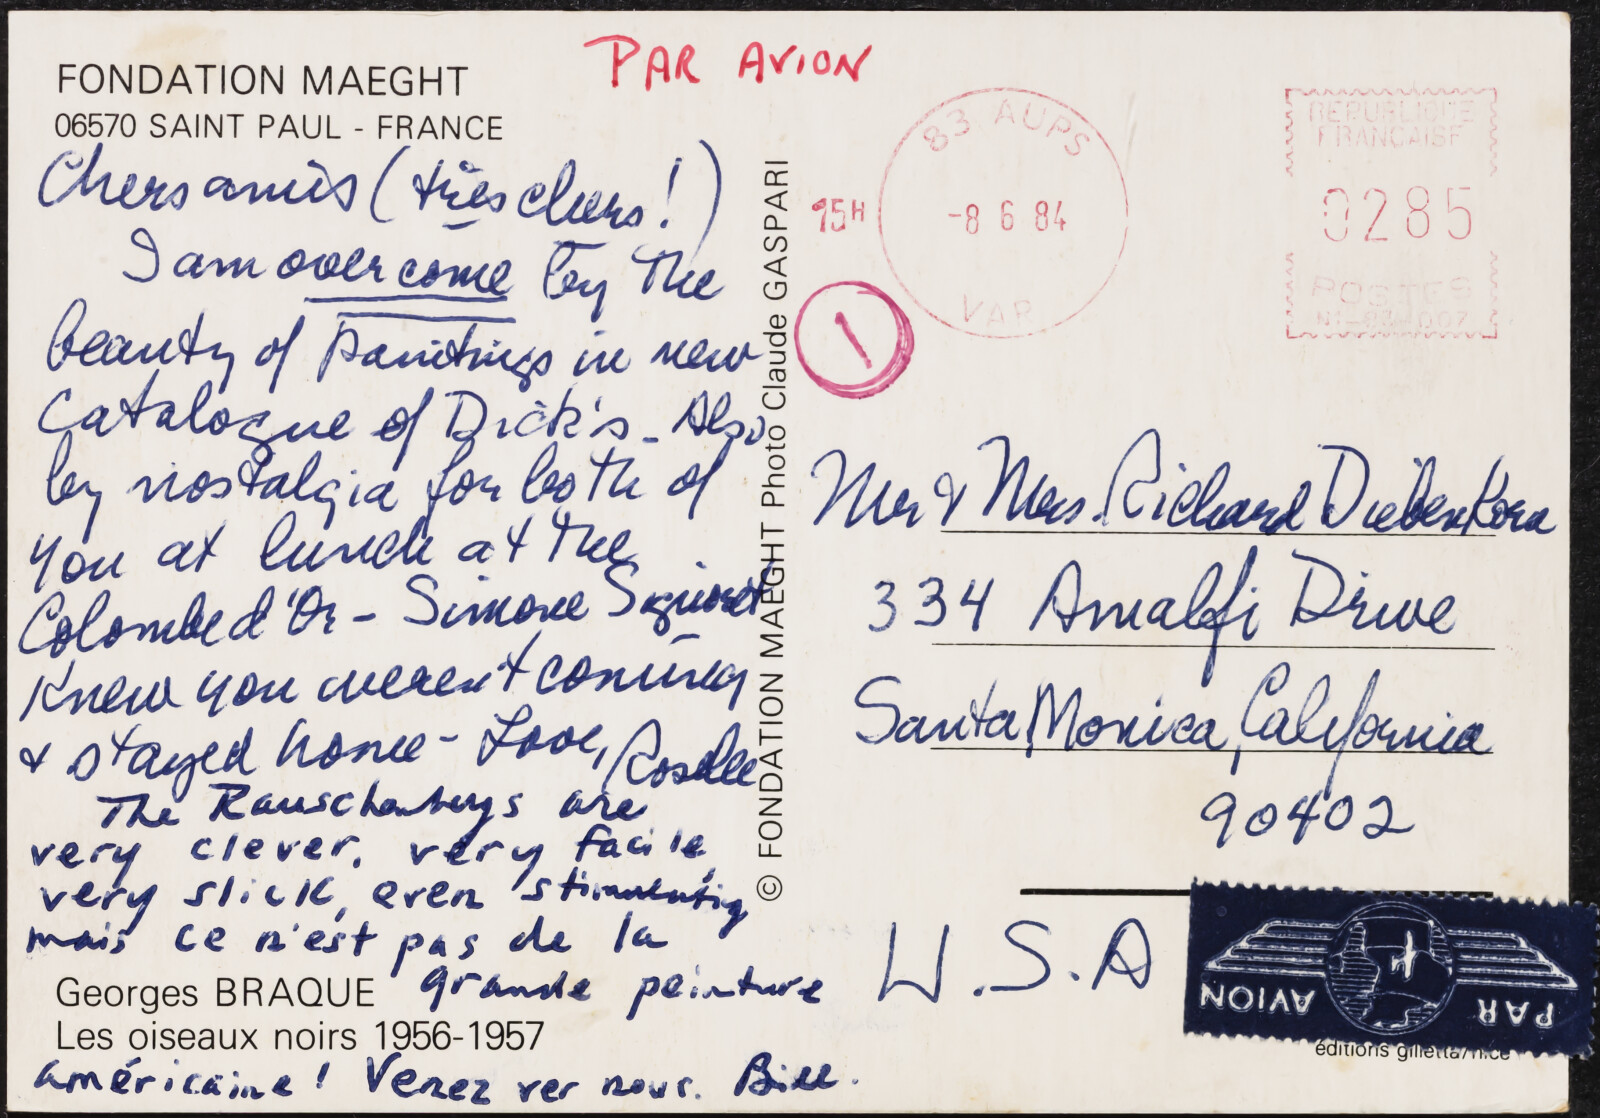 PAR AVION
FONDATION MAEGHT
06570 SAINT PAUL - FRANCE
Chers amis (très chers!)
I am overcome by the
beauty of paintings in new
catalogue of Dick's - Also
by nostalgia for both of
you at lunch at the
Colombe d'Or - Simone Signoret
knew you weren't coming
& stayed home - Love, Roselle
The Rauschenbergs are
very clever, very facile,
very slick, even stimulating
mais ce n'est pas de la
grande peinture
américaine! Venez ver nous. Bill.
Georges BRAQUE
Les oiseaux noirs 1956-1957
© FONDATION MAEGHT Photo Claude GASPARI
15H
83 AUPS
-8 6 84
VAR
1
REPUBLIQUE
FRANCAISE
0285
POSTES
Mr & Mrs. Richard Diebenkorn
334 Amalfi Drive
Santa Monica, California
90402
U.S.A
PAR AVION
éditions gilletta/nice